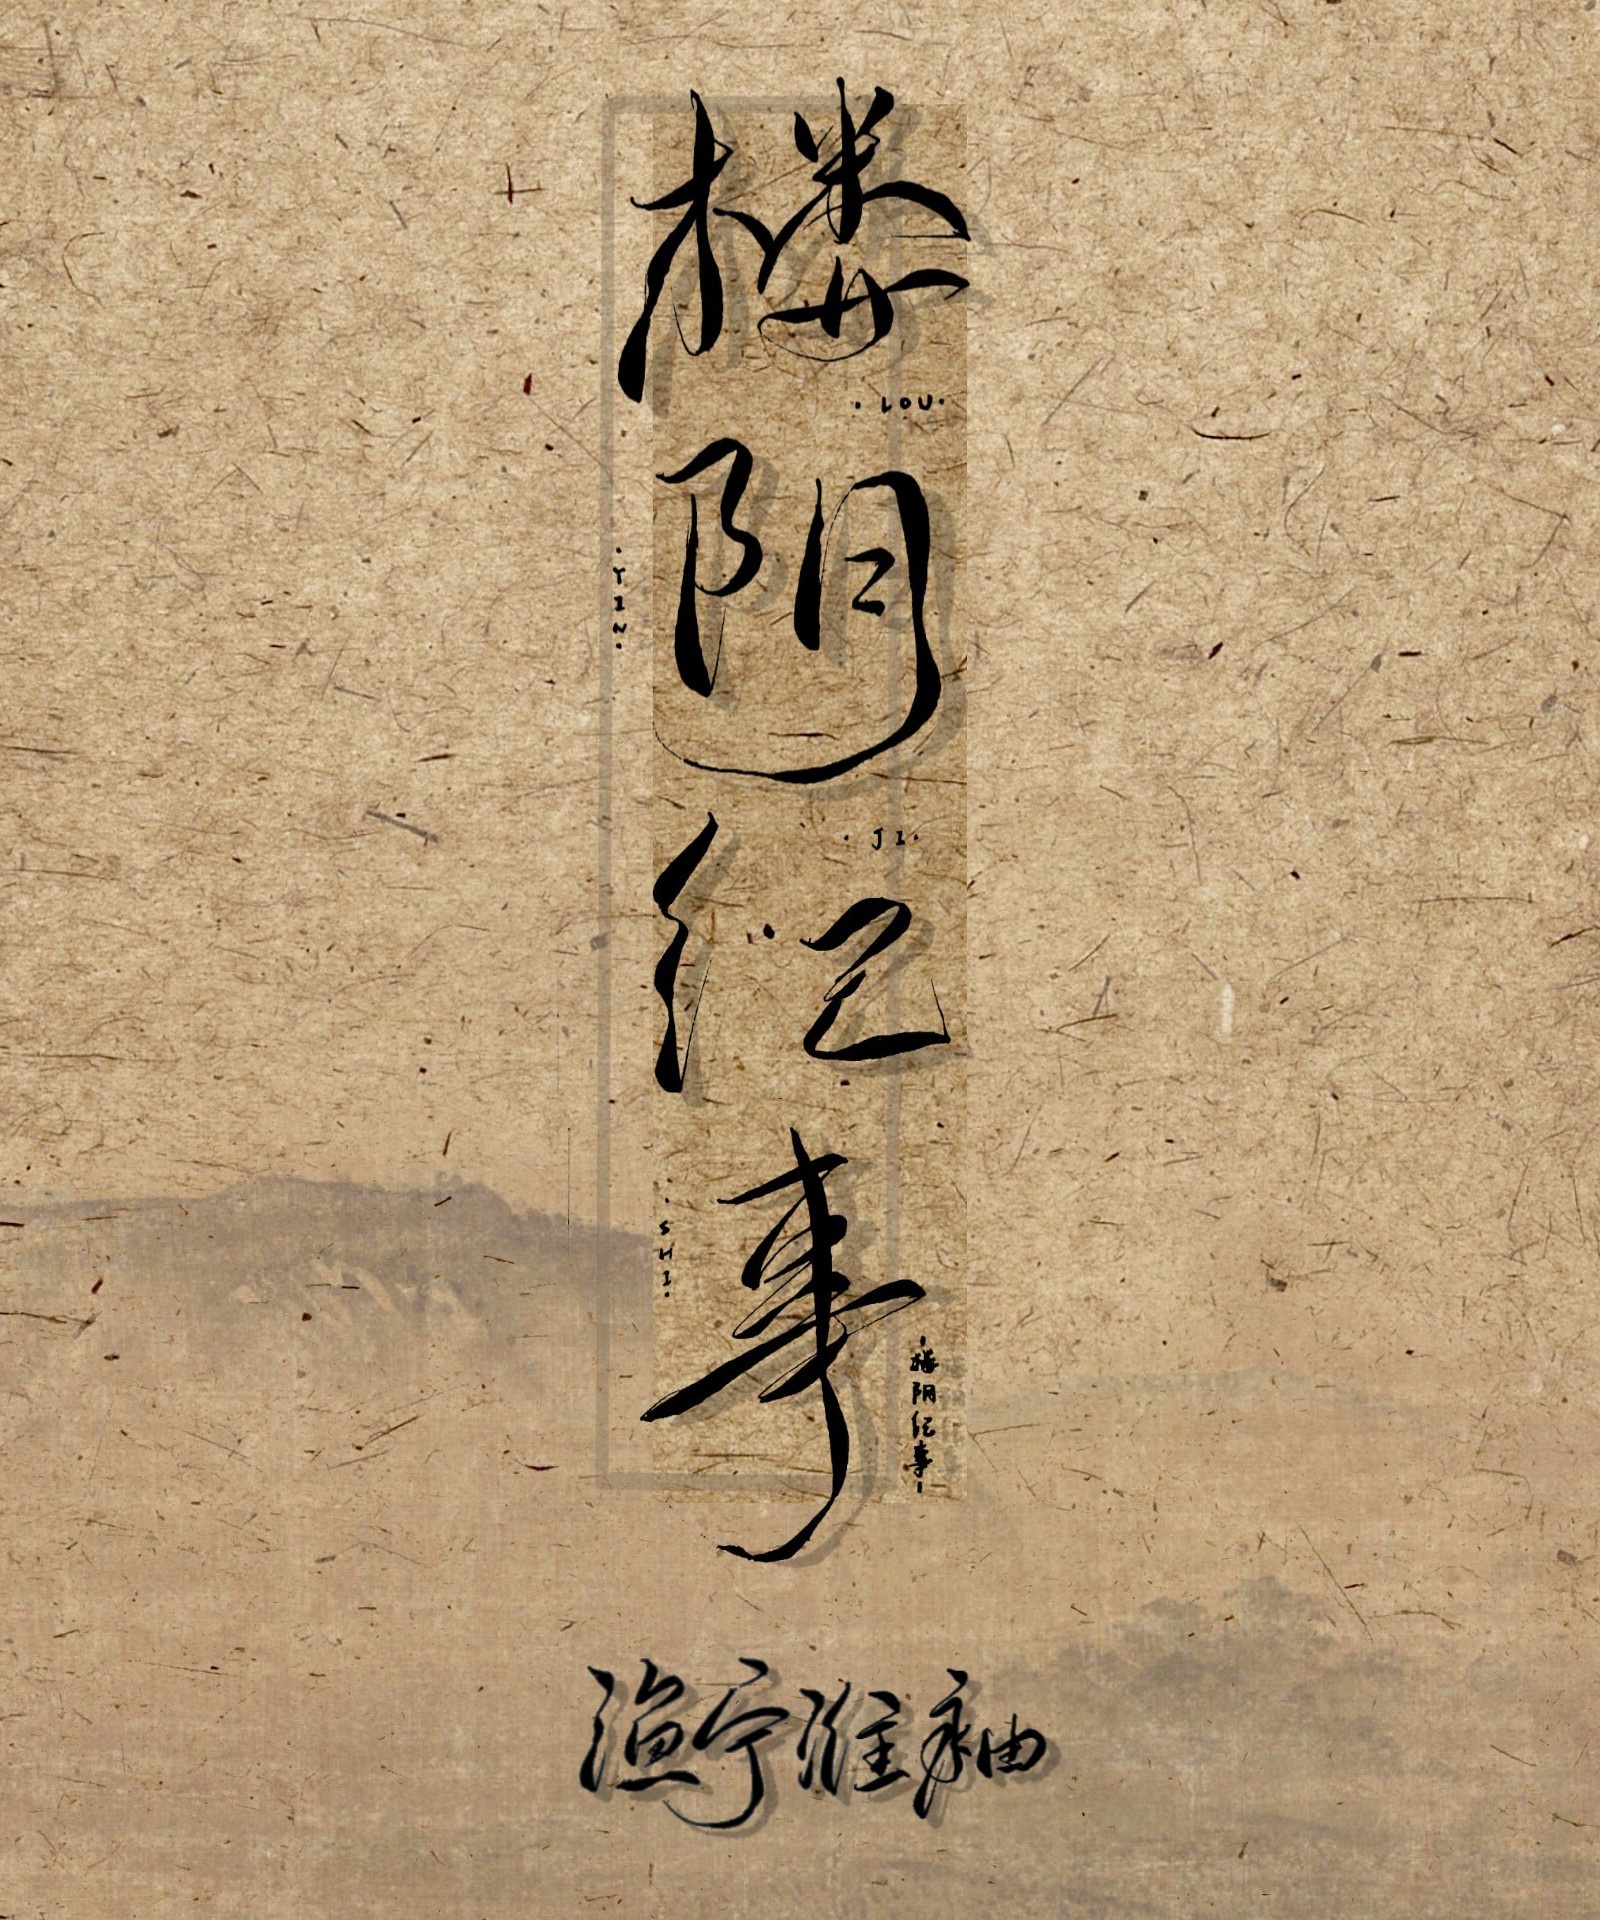 楼阴纪事
·LOU·
·YIN·
·JI·
·SHI·
·楼阴纪事·
渔宁